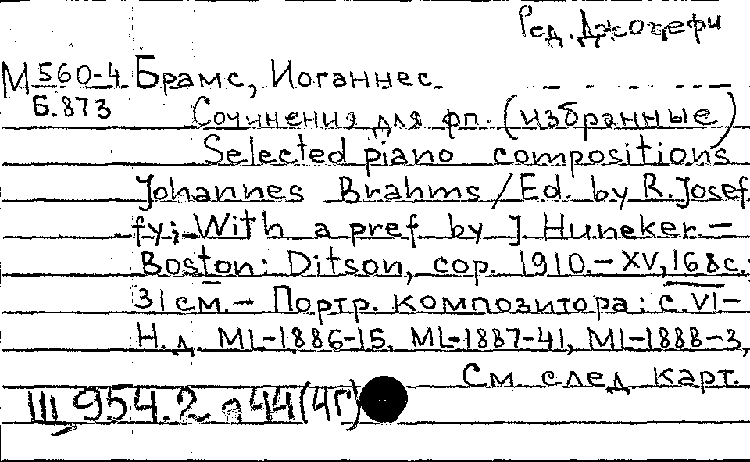 Ред. Джозефи
М 560-4 Брамс, Иоганнес.
Б.873
Сочинения для фп. (избранные)
Selected piano compositions
Johannes Brahms / Ed. by R. Josef
fy; With a pref. by J. Huneker. –
Boston: Ditson, cop. 1910. – XV, 168 с.
31 см. – Портр. композитора: с. VI –
Н.д. МI-1886-15, МI-1887-41, МI-1888-3,
См. след. карт.
Ш 954.2 44(4Г)